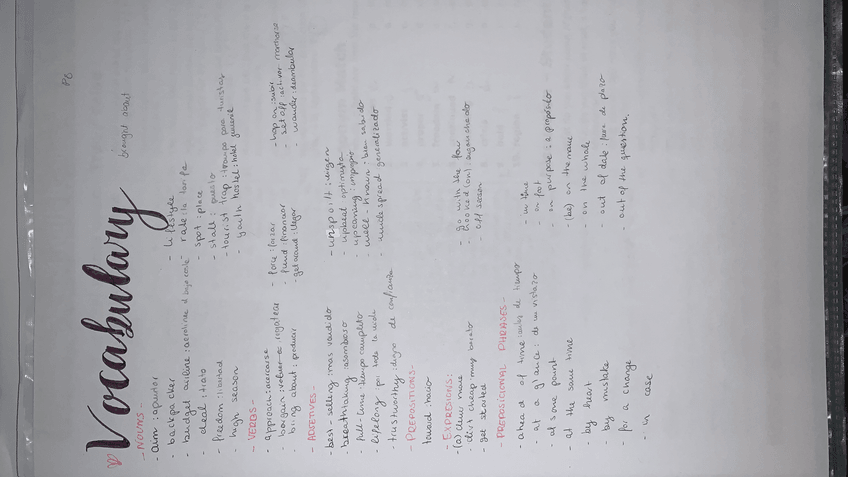 P6
Vocabulary
brought about
- NOUNS -
- aim : apuntar
- backpacker
- budget airline : aerolinea d bajo coste
- deal : trato
- freedom : libertad
- high season
- lifestyle
- rate : la tarifa
- spot : place
- stall : puesto
- tourist trap : trampa para turistas
- youth hostel : hotel juvenil
- VERBS -
- approach : acercarse
- bargain : regatear
- bring about : producir
- force : forzar
- fund : financiar
- get around : llegar
- hop on : subir
- set off : activar, marcharse
- wander : deambular
- ADJETIVES -
- best-selling : mas vendido
- breathtaking : asombroso
- full-time : tiempo completo
- lifelong : por toda la vida
- trustworthy : digno de confianza
- unspoilt : virgen
- upbeat : optimista
- upcoming : proximo
- well-known : bien sabido
- widespread : generalizado
- PREPOSITIONS -
toward : hacia
- EXPRESIONS :
- (a) close shave
- dirt cheap : muy barato
- get started
- go with the flow
- hooked (on) : enganchado
- off season
- PREPOSICIONAL PHRASES -
- ahead of time : antes de tiempo
- at a glance : de un vistazo
- at some point
- at the same time
- by heart
- by mistake
- for a change
- in case
- in time
- in fact
- on purpose : a propósito
- (be) on the move
- on the whole
- out of date : fuera de plazo
- out of the question.